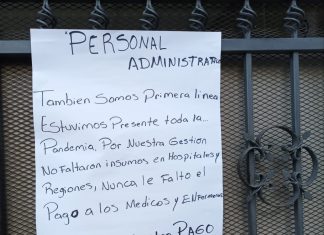 PERSONAL
ADMINISTRATIVO
Tambien Somos Primera linea
Estuvimos Presente toda la...
Pandemia. Por Nuestra Gestion
No Faltaron insumos en Hospitales y
Regiones, Nunca le Falto el
Pago a los Medicos y Enfermeras
PAGO